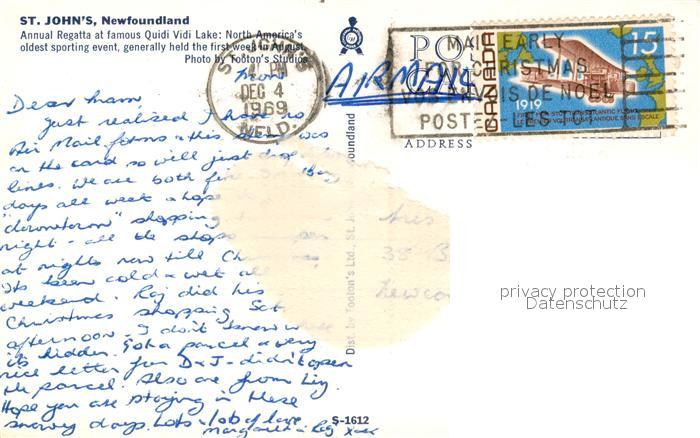 ST. JOHN'S, Newfoundland
Annual Regatta at famous Quidi Vidi Lake: North America's
oldest sporting event, generally held the first week in August.
Photo by Tooton's Studios
ST. JOHN'S
PM
DEC 4
1969
NFLD.
MAIL EARLY
FOR CHRISTMAS
VOS ENVOIS DE NOEL
POSTEZ LES TOT
CANADA
15
1919
AIRMAIL
ADDRESS
Mon
Dear Mam,
Just realized I have no
Air Mail forms & this was
on the card so will just drop
lines. We are both fine. Busy
days all week & hope
"downtown" shopping
night - all the shops
at nights now till
Its been cold & wet all
weekend. Roj did his
Christmas shopping Sat
afternoon - I don't know
its hidden. Got a parcel & very
nice letter from D & J - didn't open
the parcel. Also one from Liz.
Hope you are staying in these
snowy days. Lots & lots of love
Margaret & Roj xxx
38 B
Newca
Dist. by Tooton's Ltd., St. foundland
S-1612
privacy protection
Datenschutz